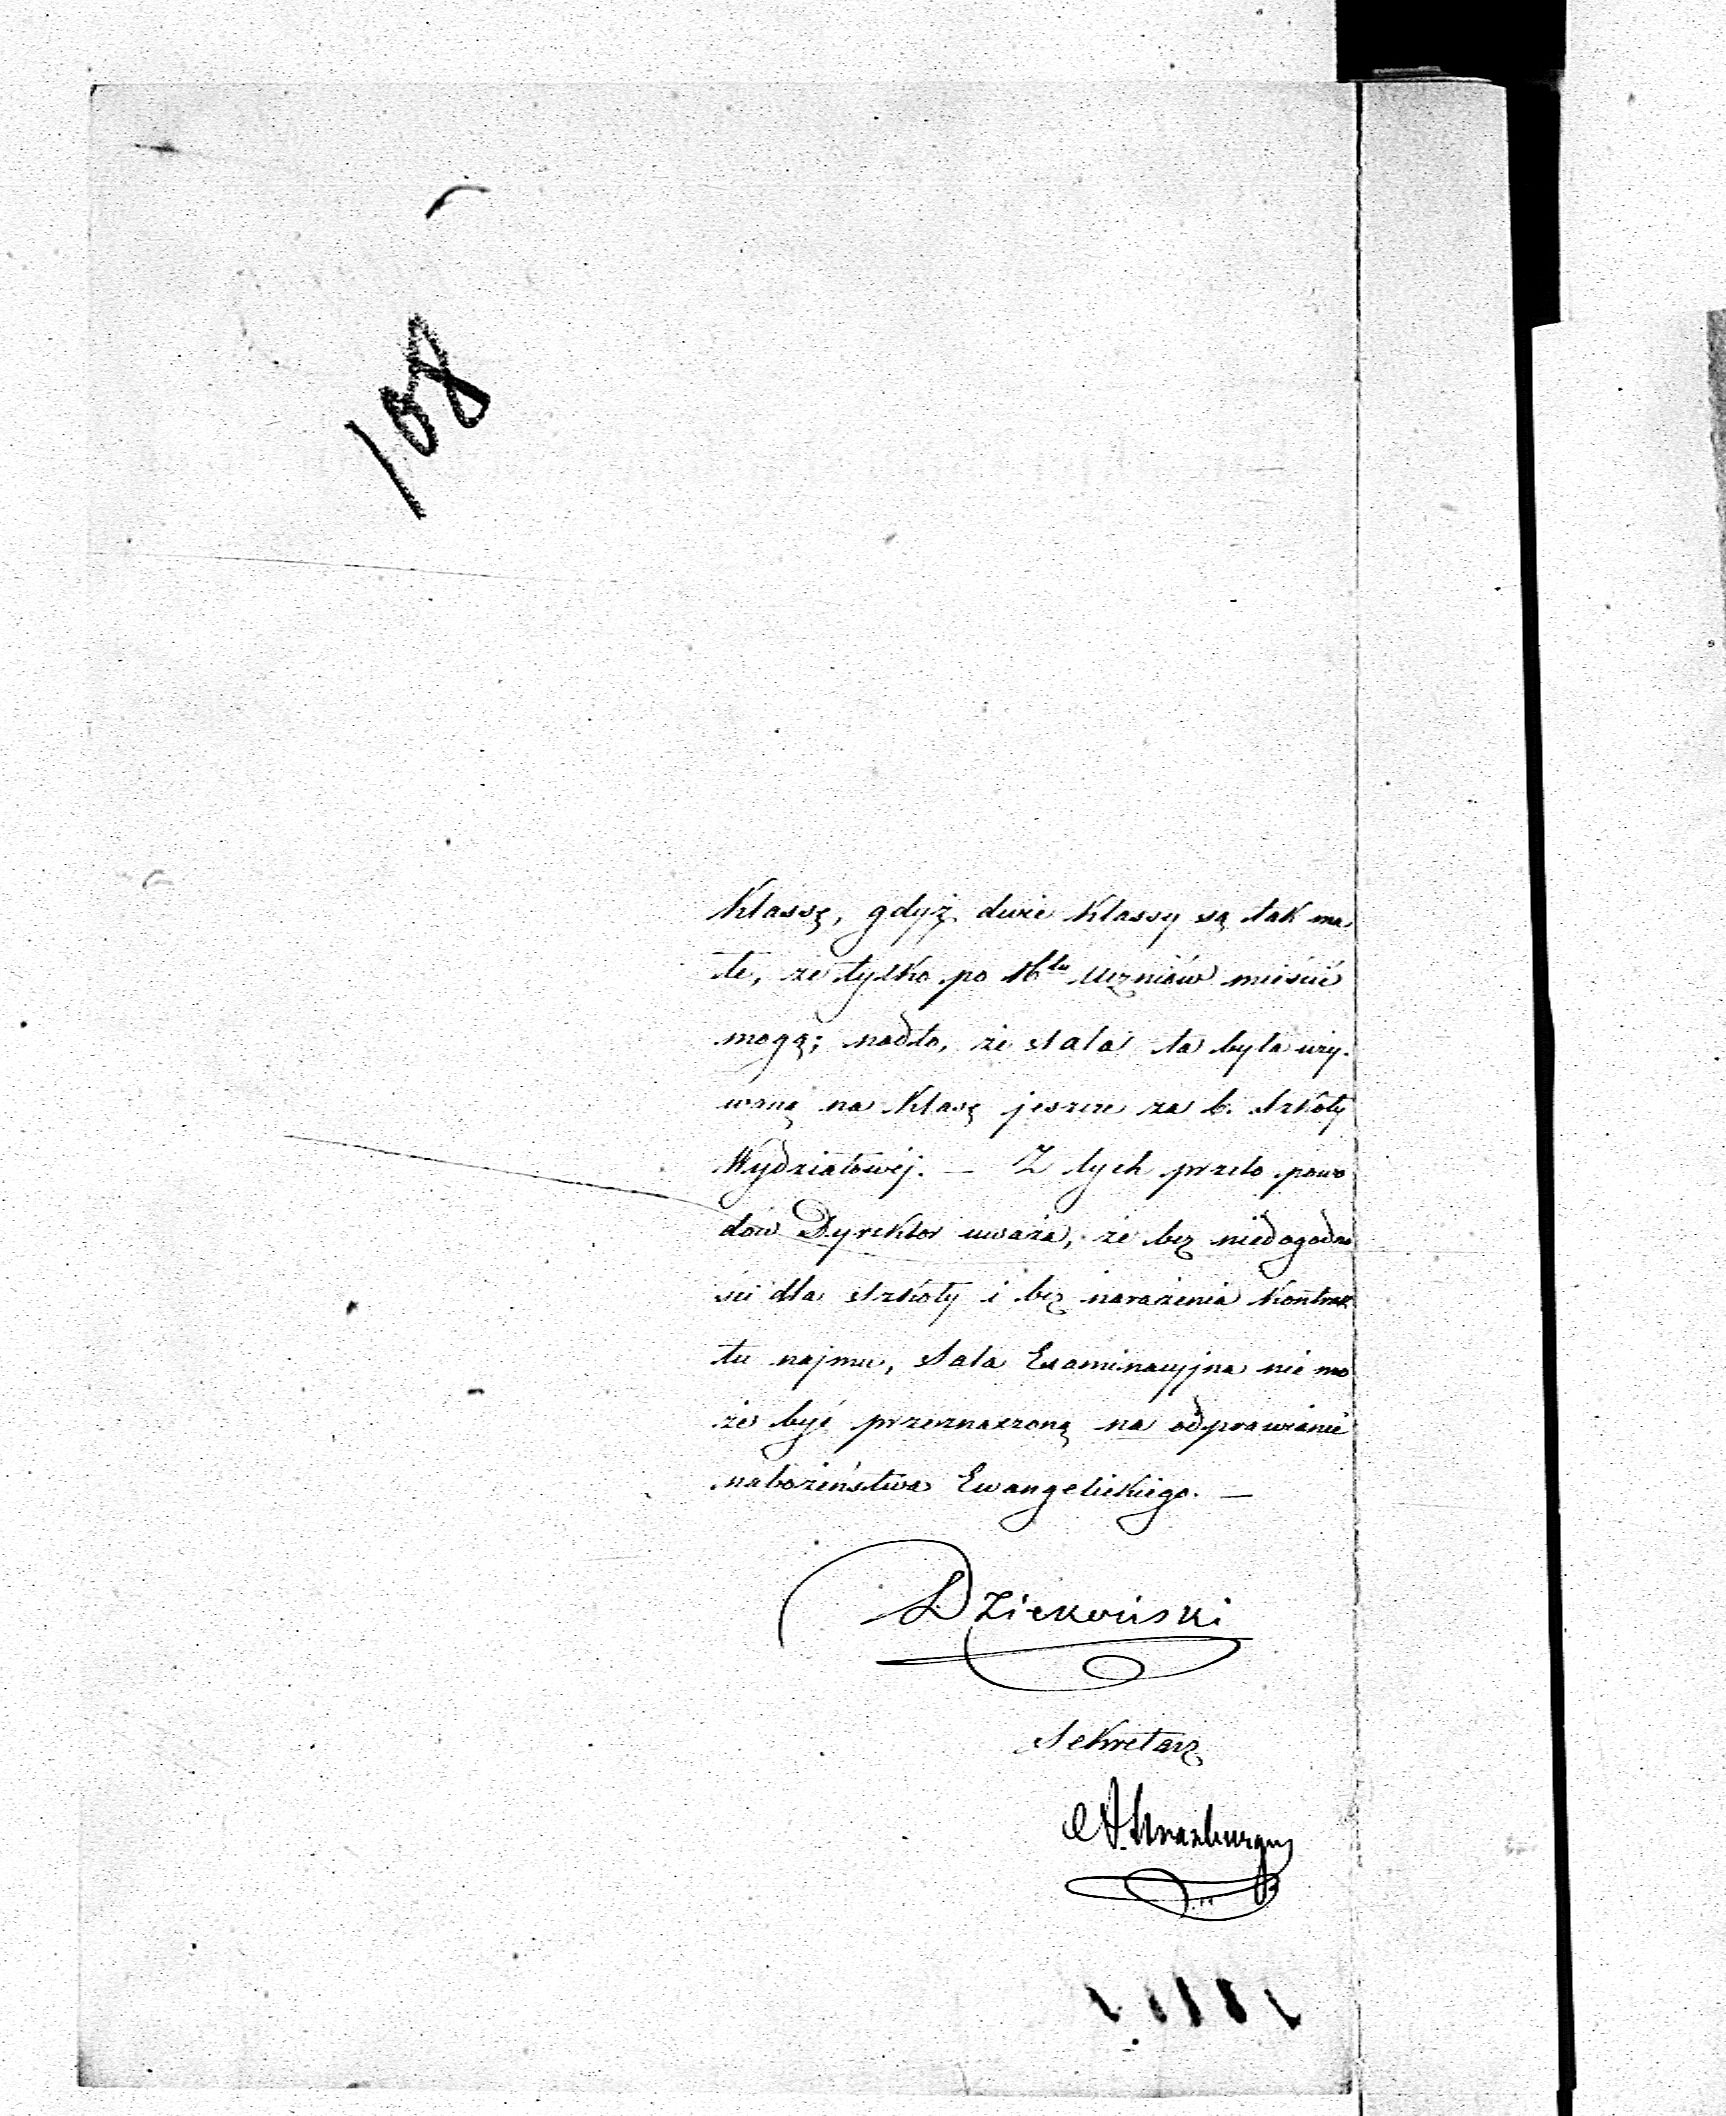 108
Klassę, gdyż duże Klassy są tak ma
łe, że tylko po 16tu Uczniów mieścić
mogą; nadto, że Sala ta była uży-
waną na Klasę jeszcze za b. Szkoły
Wydziałowéj. — Z tych przeto powo
dów Dyrektor uważa, że bez niedogodno
ści dla Szkoły i bez narażenia Kontrak
tu najmu, Sala Examinacyjna nie mo
że być przeznaczoną na odprawianie
nabożeństwa Ewangelickiego. —
Dziekoński
Sekretarz
A. Strazburger